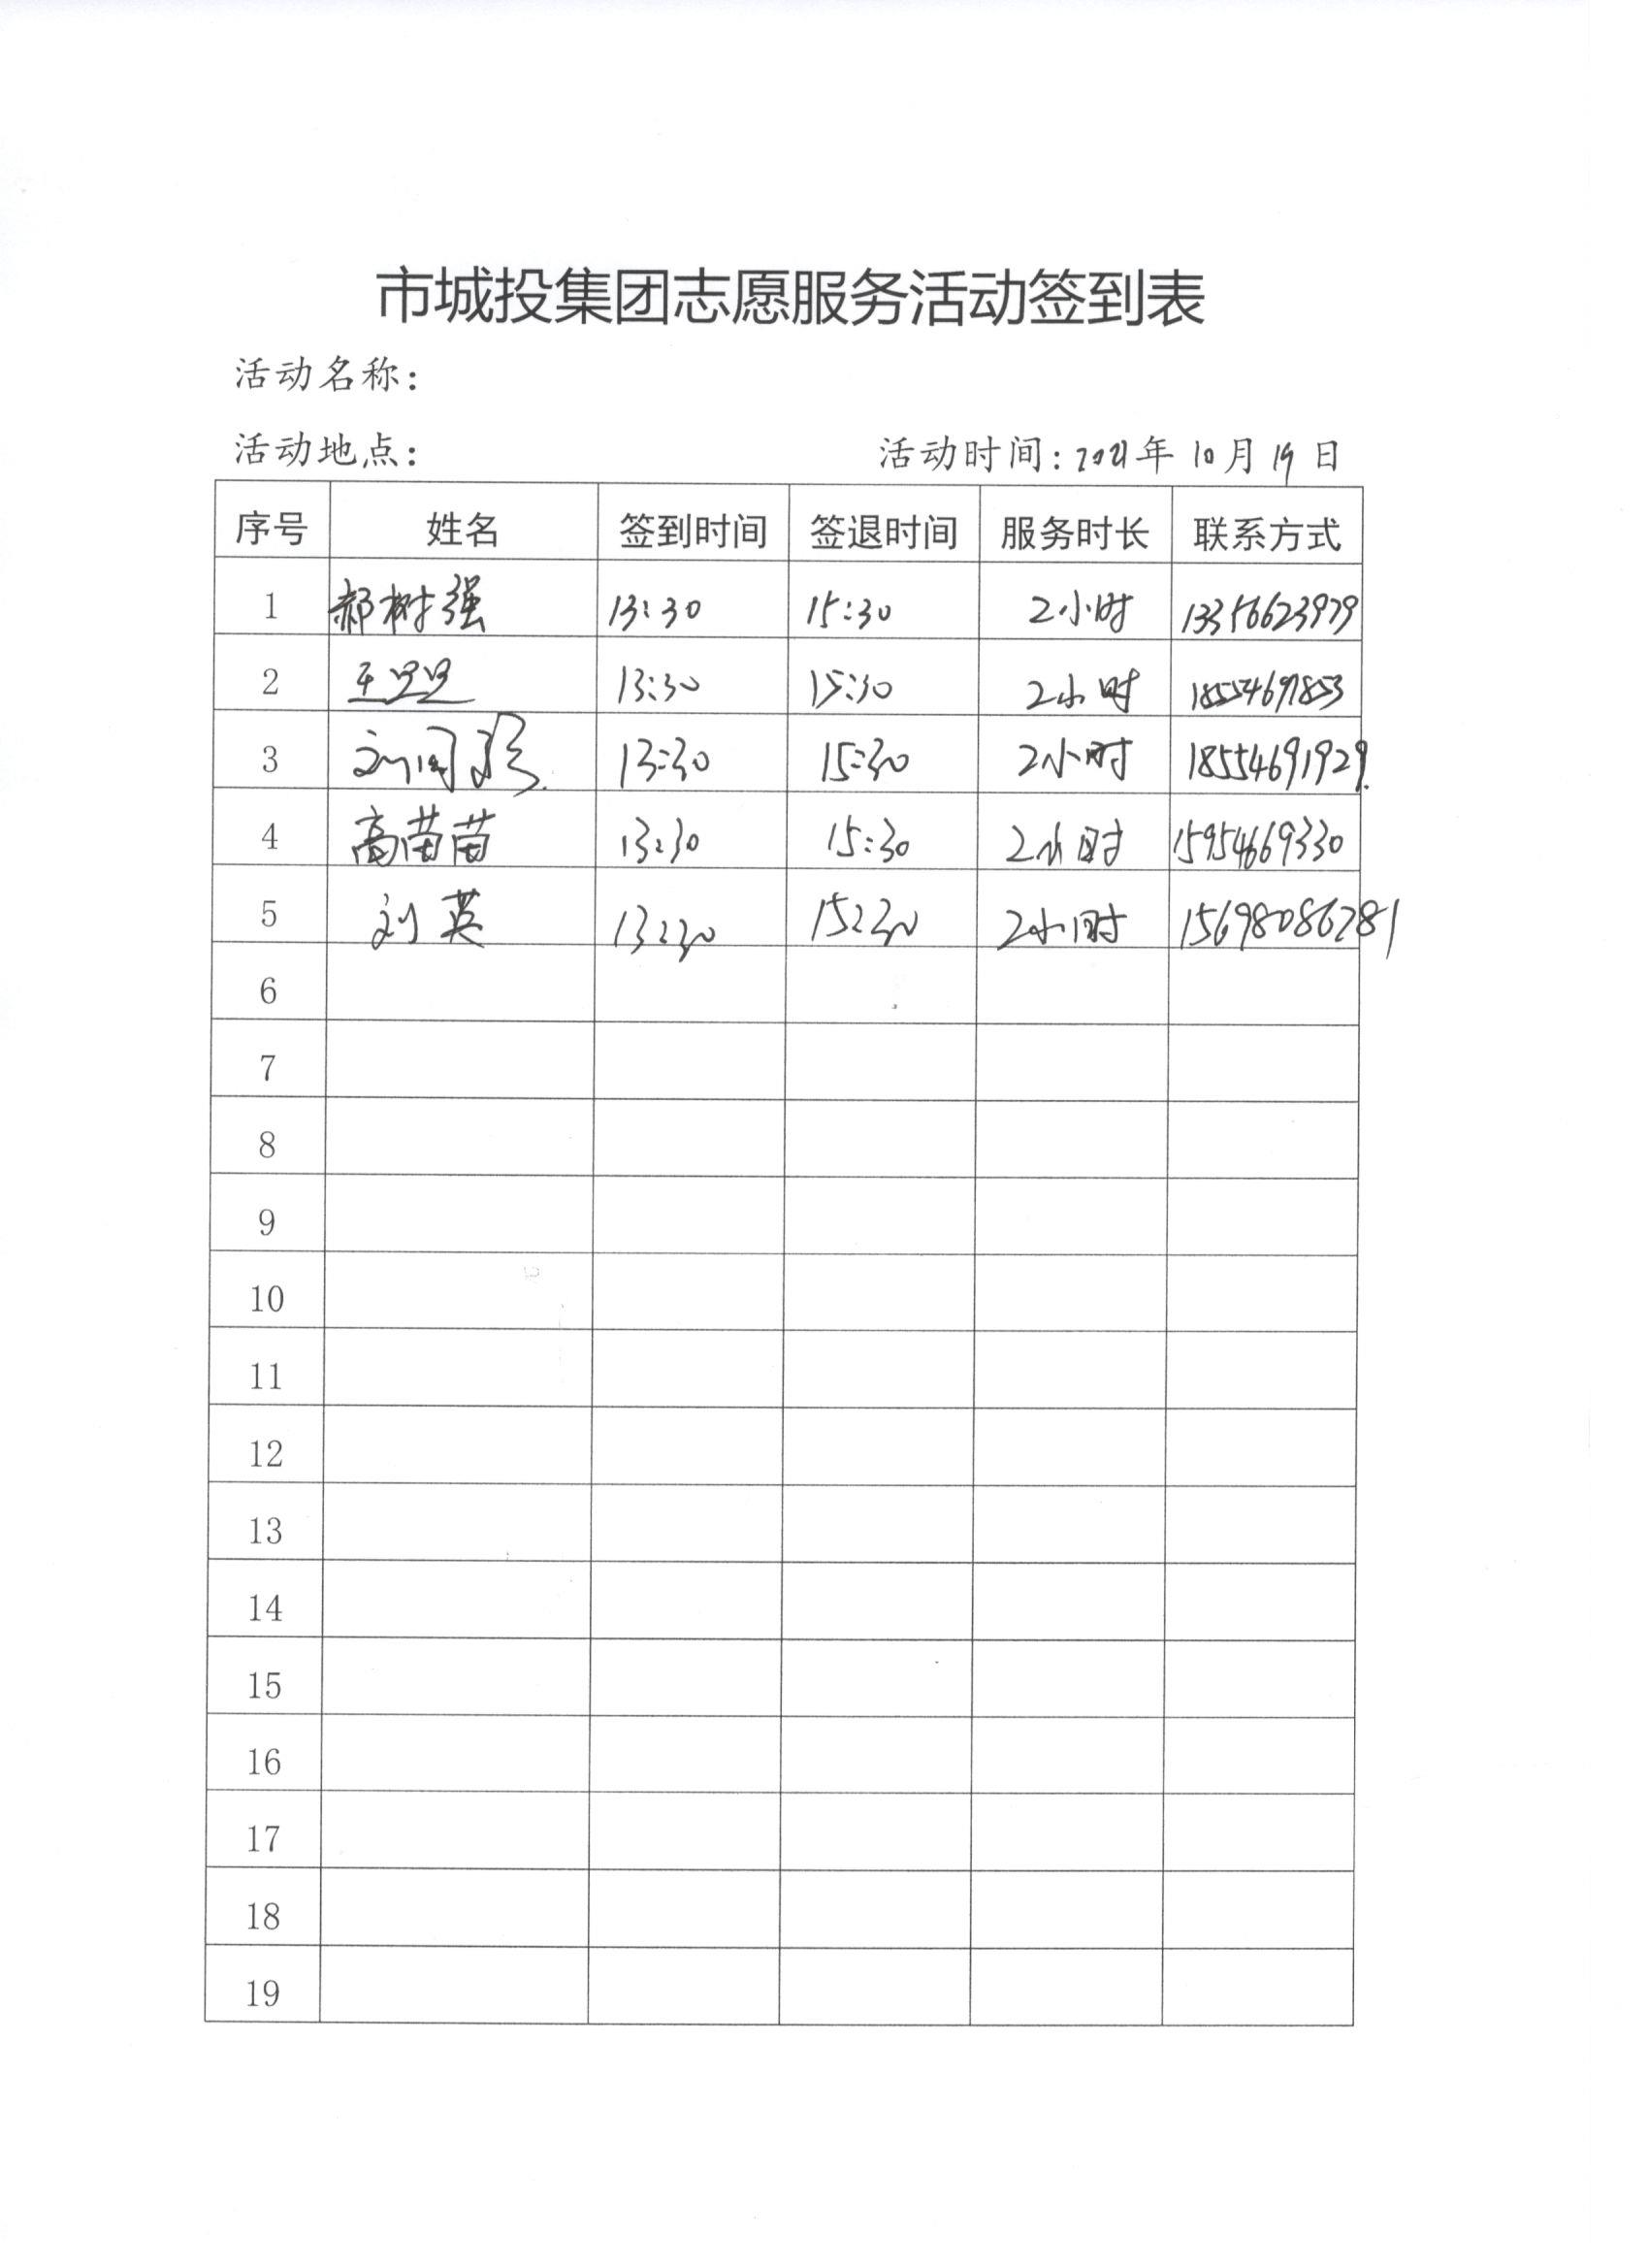 市城投集团志愿服务活动签到表
活动名称:
活动地点: 活动时间: 2021年 10月 19日
序号 姓名 签到时间 签退时间 服务时长 联系方式
1 郝树强 13:30 15:30 2小时 13356623979
2 13:30 15:30 2小时 18554691853
3 刘闰珍 13:30 15:30 2小时 18554691929
4 高苗苗 13:30 15:30 2小时 15954669330
5 刘英 13:30 15:30 2小时 15698086281
6
7
8
9
10
11
12
13
14
15
16
17
18
19